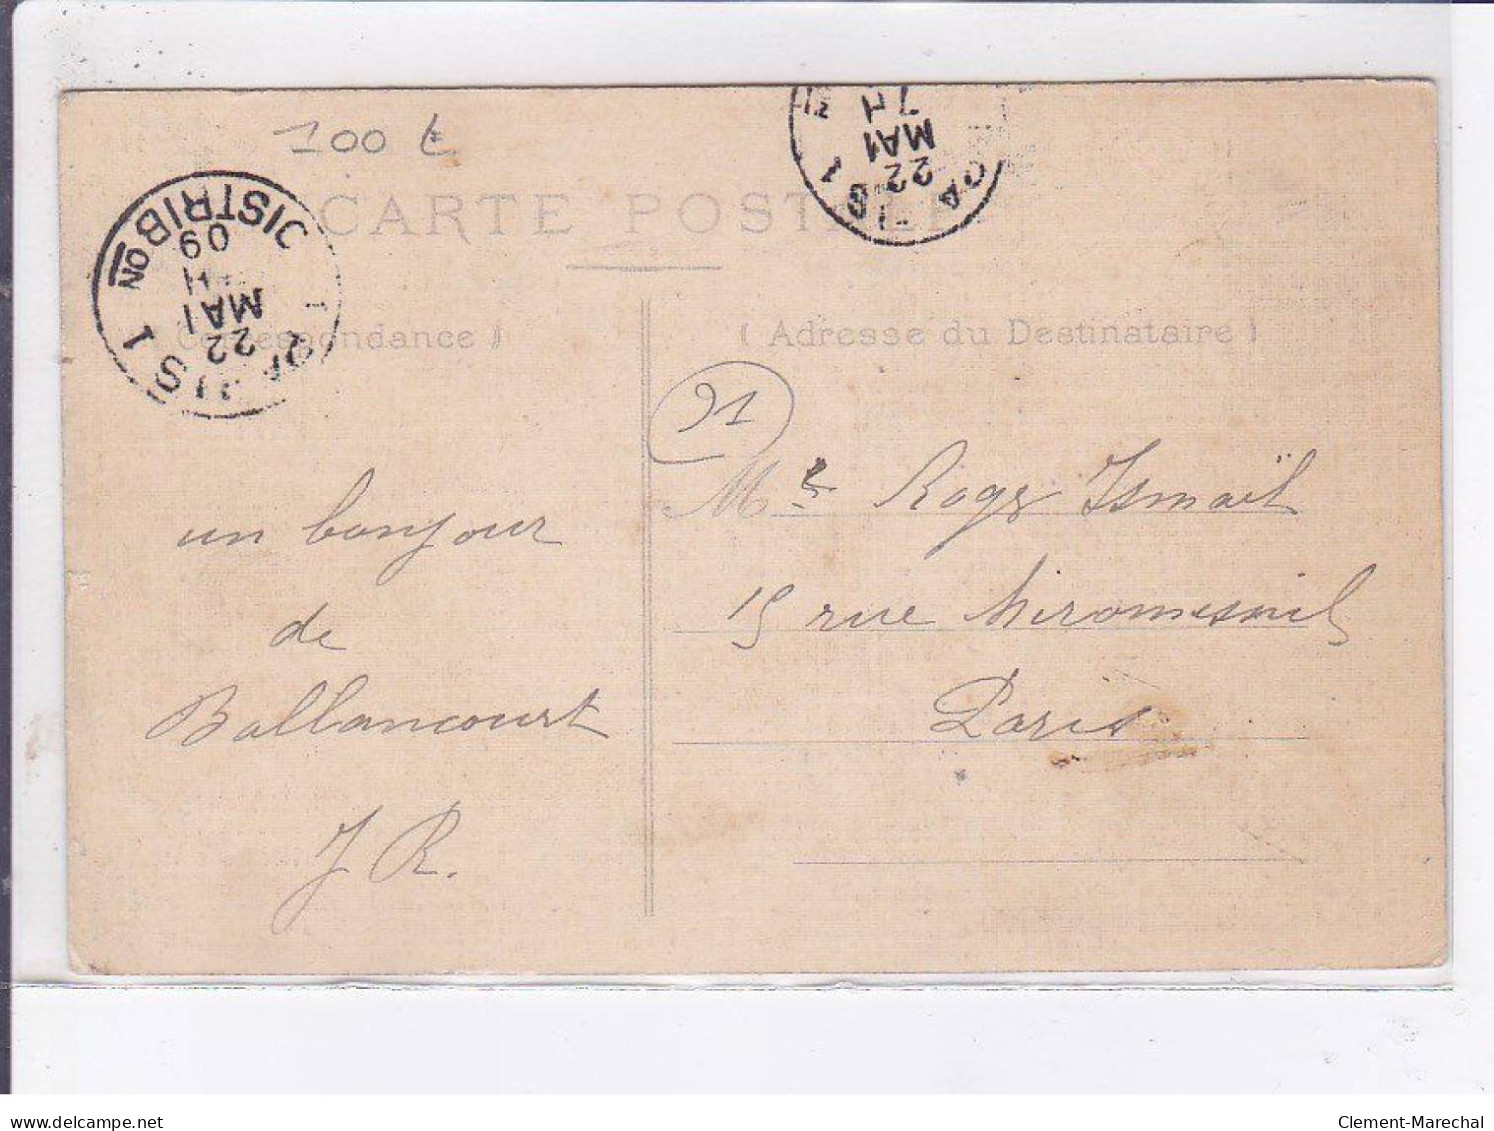 100 €
CARTE POSTALE
PARIS 1 DISTRIBON
22
MAI
H
09
PARIS 1
22
MAI
7H
Correspondance )
( Adresse du Destinataire )
91
un bonjour
de
Ballancourt
J R.
Mr Roger Ismaïl
15 rue Miromesnil
Paris
delcampe.net
Clement-Marechal